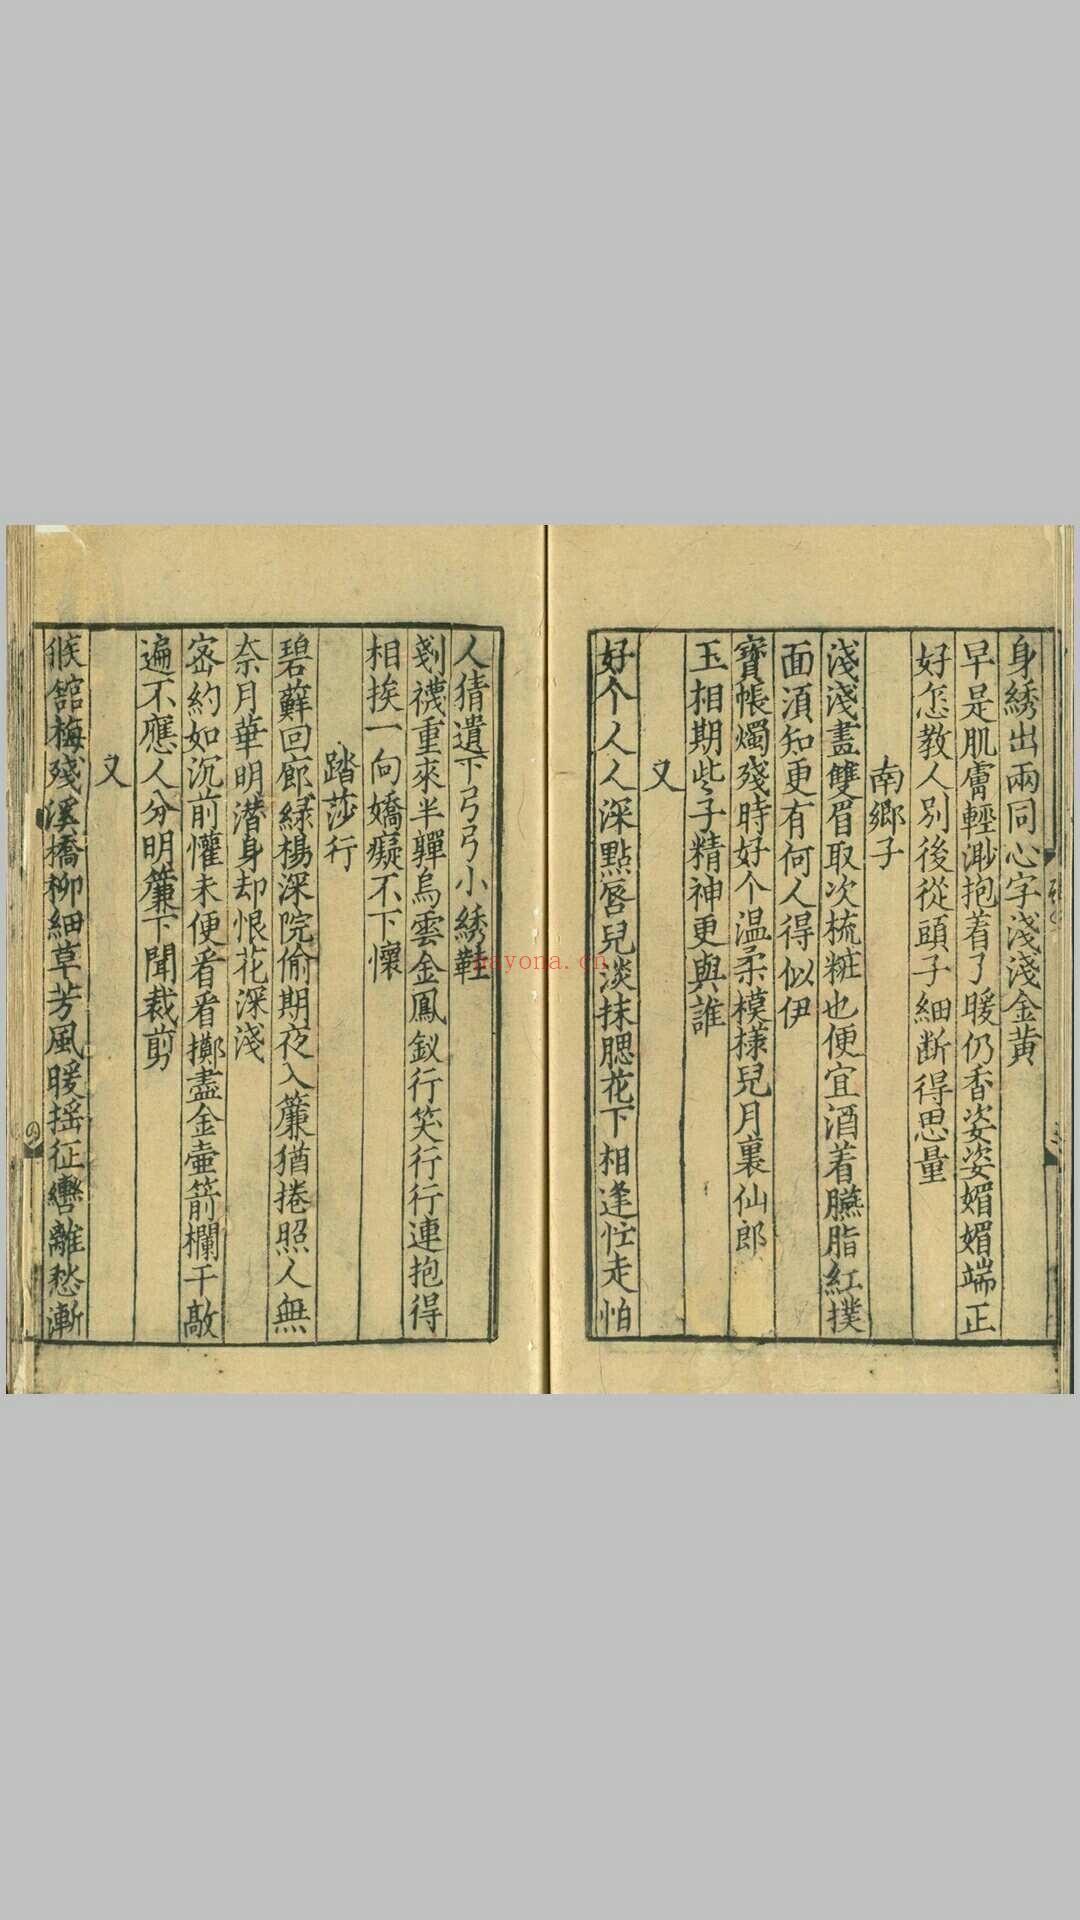 身綉出兩同心字淺淺金黃
早是肌膚輕渺抱着了暖仍香姿姿媚媚端正
好怎教人別後從頭子細断得思量
南鄉子
淺淺畫雙眉取次梳粧也便宜酒着臙脂紅撲
面湏知更有何人得似伊
寳帳燭殘時好个温柔模様兒月裏仙郎
玉相期些子精神更與誰
又
好个人人深點唇兒淡抹腮花下相逢忙走怕
人猜遺下弓弓小綉鞋
剗襪重來半嚲烏雲金鳳釵行笑行行連抱得
相挨一向嬌癡不下懷
踏莎行
碧蘚回廊緑楊深院偷期夜入簾猶捲照人無
奈月華明潜身却恨花深淺
宻約如沉前懽未便看看擲盡金壷箭欄干敲
遍不應人分明簾下聞裁剪
又
候舘梅殘溪橋柳細草芳風暖揺征轡離愁漸
nayona.cn